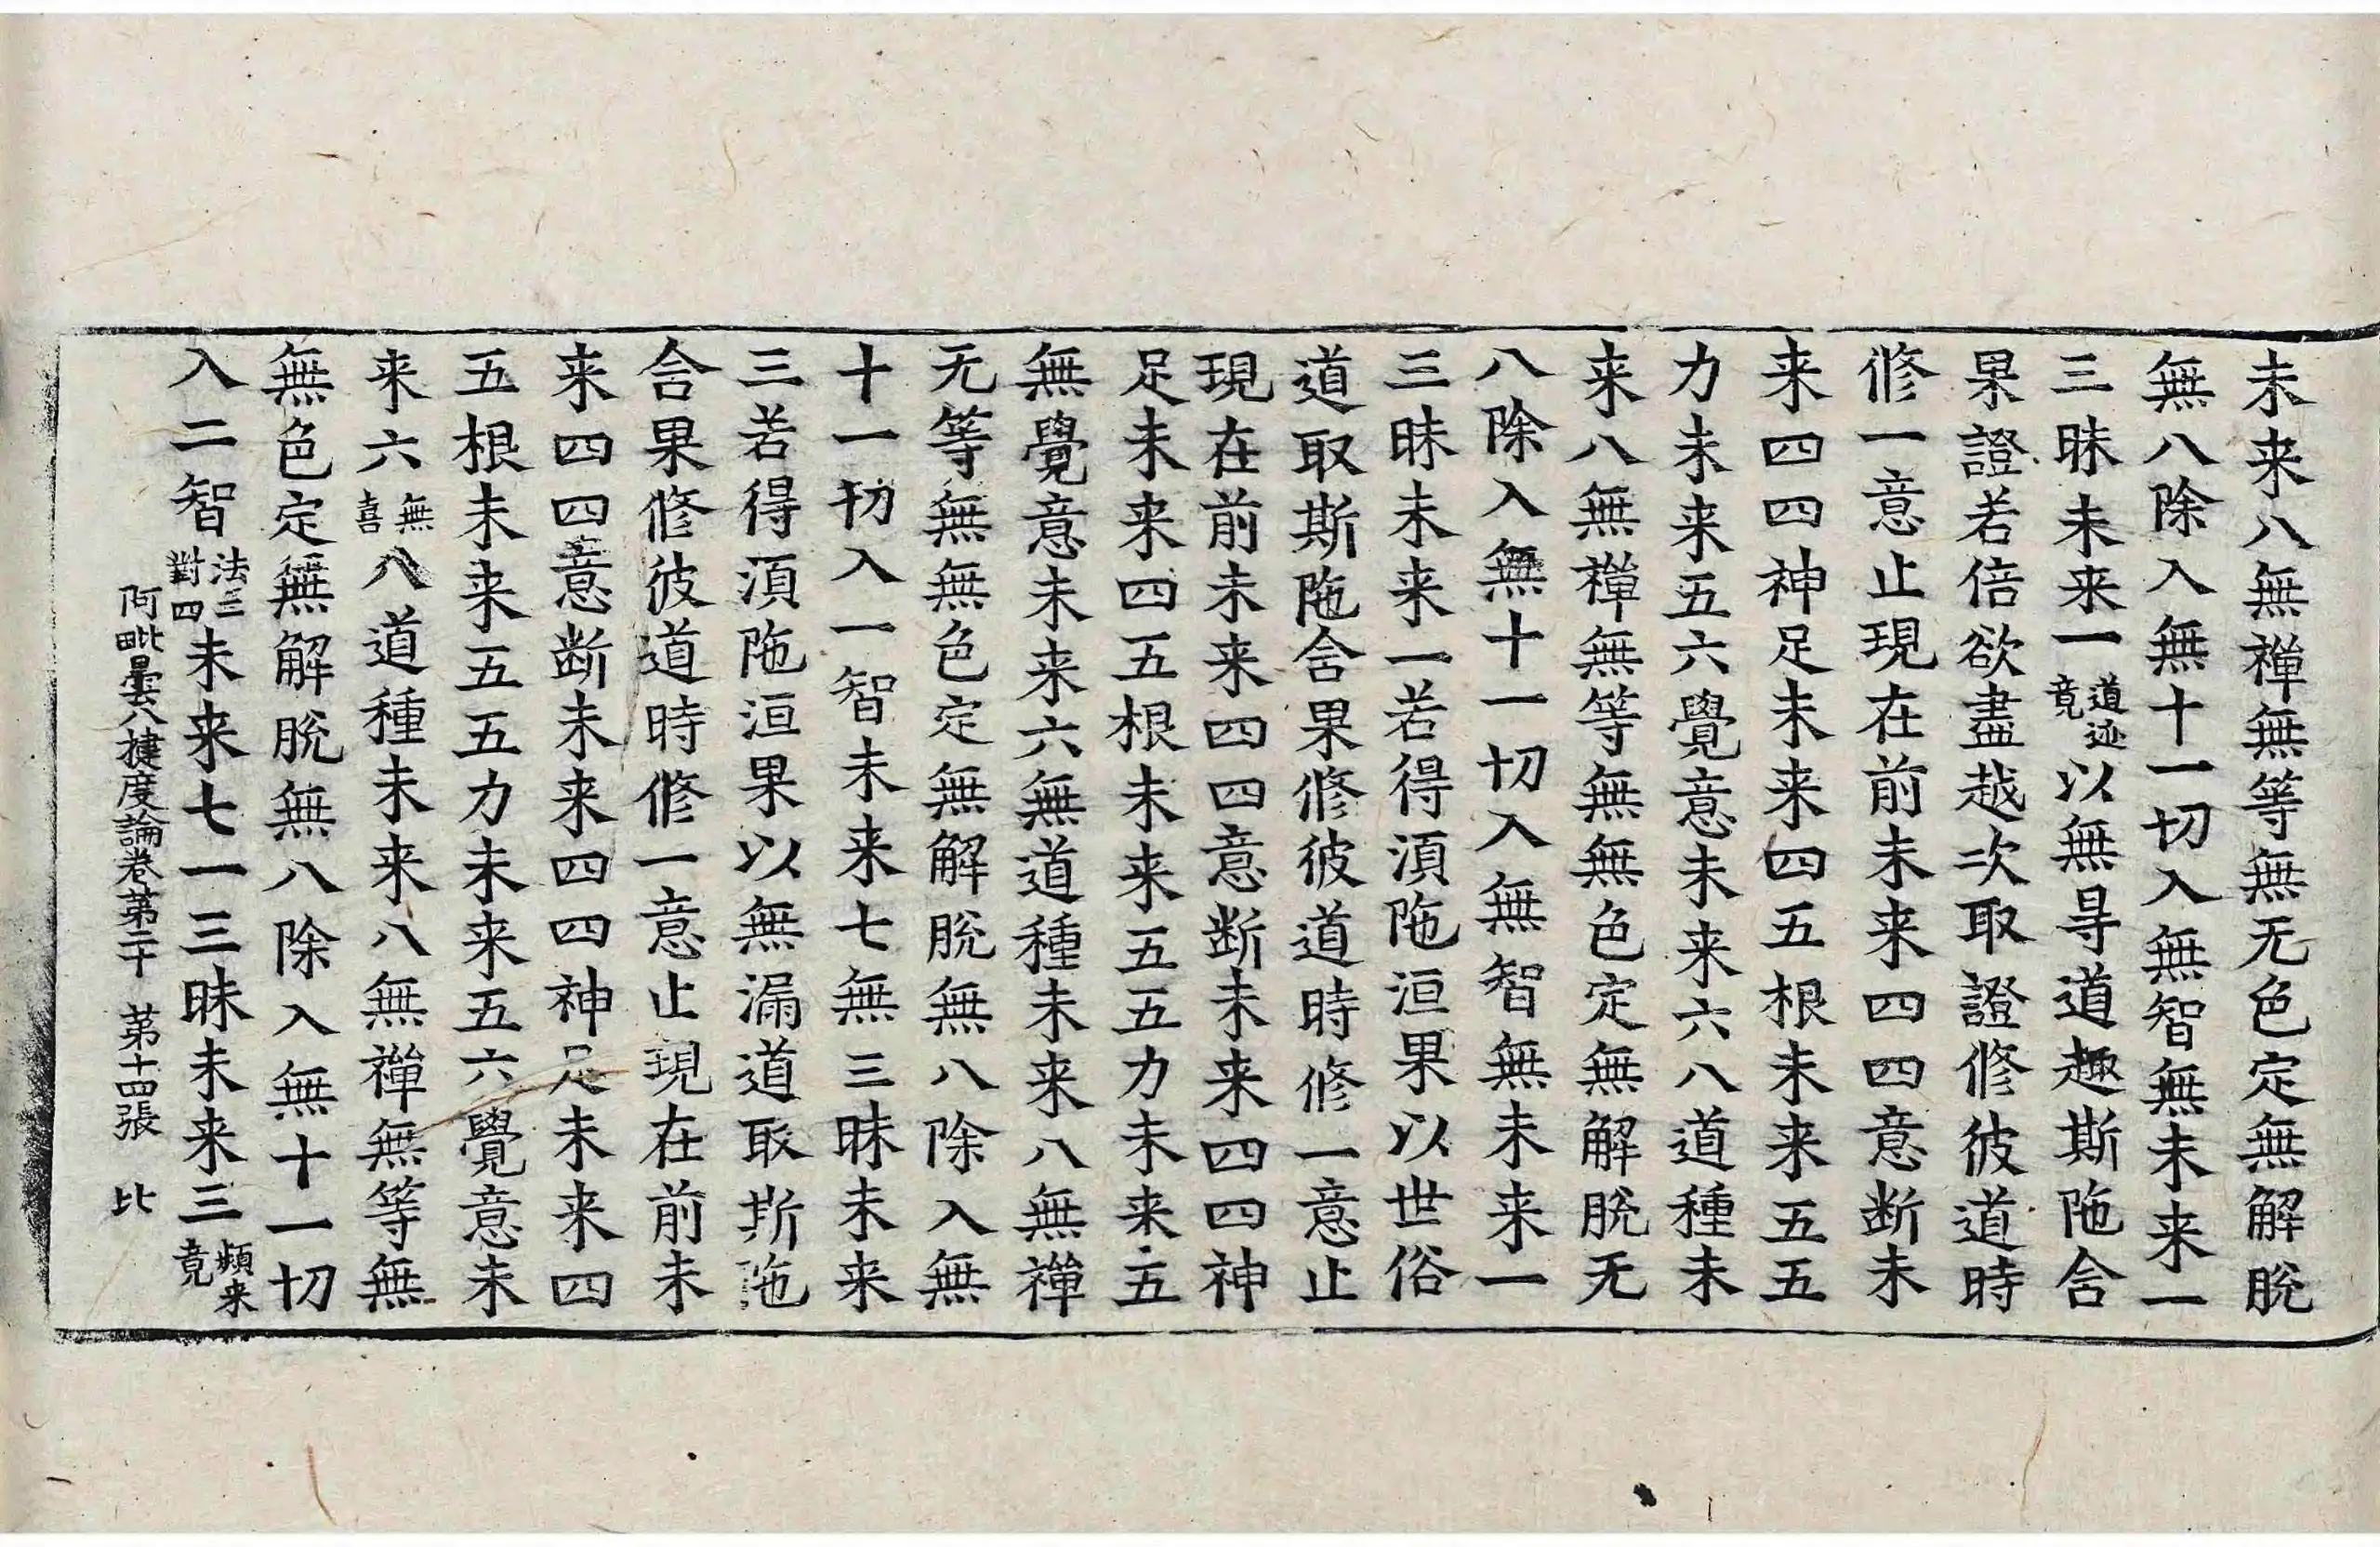 未来八無禪無等無无色定無解脫
無八除入無十一切入無智無未来一
三昧未来一道迹竟以無㝵道趣斯陁含
果證若倍欲盡越次取證修彼道時
修一意止現在前未来四四意断未
来四四神足未来四五根未来五五
力未来五六覺意未来六八道種未
来八無禪無等無無色定無解脫无
八除入無十一切入無智無未来一
三昧未来一若得湏陁洹果以世俗
道取斯陁含果修彼道時修一意止
現在前未来四四意断未来四四神
足未来四五根未来五五力未来五
無覺意未来六無道種未来八無禪
无等無無色定無解脫無八除入無
十一切入一智未来七無三昧未来
三若得湏陁洹果以無漏道取斯陁
含果修彼道時修一意止現在前未
来四四意断未来四四神足未来四
五根未来五五力未来五六覺意未
来六無喜八道種未来八無禪無等無
無色定無解脫無八除入無十一切
入二智法三對四未来七一三昧未来三頻来竟
阿毗曇八揵度論卷第二十 第十四張 比